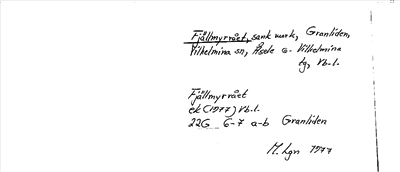 Fjällmyrrået, sank mark, Granliden,
Vilhelmina sn, Åsele o. Vilhelmina
tg, Vb.l.
Fjällmyrrået
ek (1977) Vb.l.
22G 6-7 a-b Granliden
M. Lgn 1977